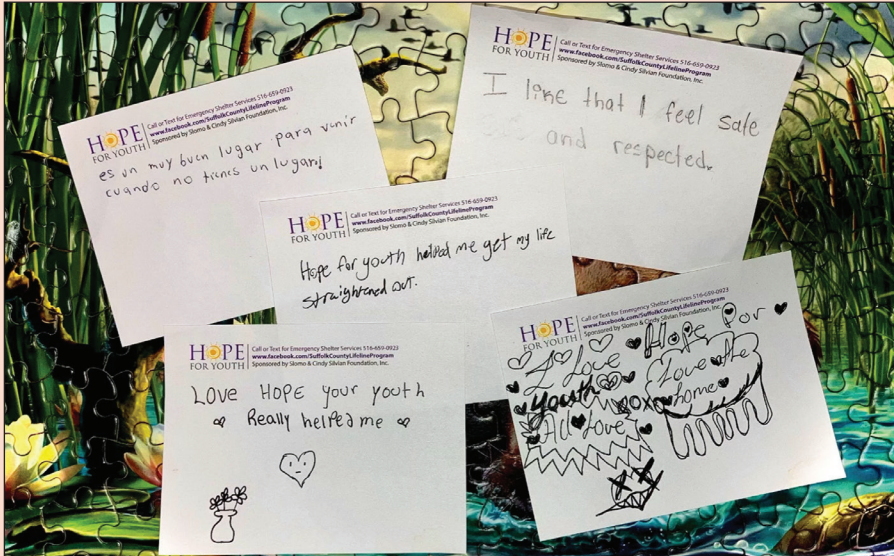 HOPE
FOR YOUTH
Call or Text for Emergency Shelter Services 516-659-0923
www.facebook.com/SuffolkCountyLifelineProgram
Sponsored by Slomo & Cindy Silvian Foundation, Inc.
es un muy buen lugar para venir
cuando no tienes un lugar!
HOPE
FOR YOUTH
Call or Text for Emergency Shelter Services 516-659-0923
www.facebook.com/SuffolkCountyLifelineProgram
Sponsored by Slomo & Cindy Silvian Foundation, Inc.
I like that I feel safe
and respected.
HOPE
FOR YOUTH
Call or Text for Emergency Shelter Services 516-659-0923
www.facebook.com/SuffolkCountyLifelineProgram
Sponsored by Slomo & Cindy Silvian Foundation, Inc.
Hope for youth helped me get my life
straightened out.
HOPE
FOR YOUTH
Call or Text for Emergency Shelter Services 516-659-0923
www.facebook.com/SuffolkCountyLifelineProgram
Sponsored by Slomo & Cindy Silvian Foundation, Inc.
LOVE HOPE your youth
Really helped me
HOPE
FOR YOUTH
Call or Text for Emergency Shelter Services 516-659-0923
www.facebook.com/SuffolkCountyLifelineProgram
Sponsored by Slomo & Cindy Silvian Foundation, Inc.
I Love Hope For
Youth xoxo
All Love
Love the
home